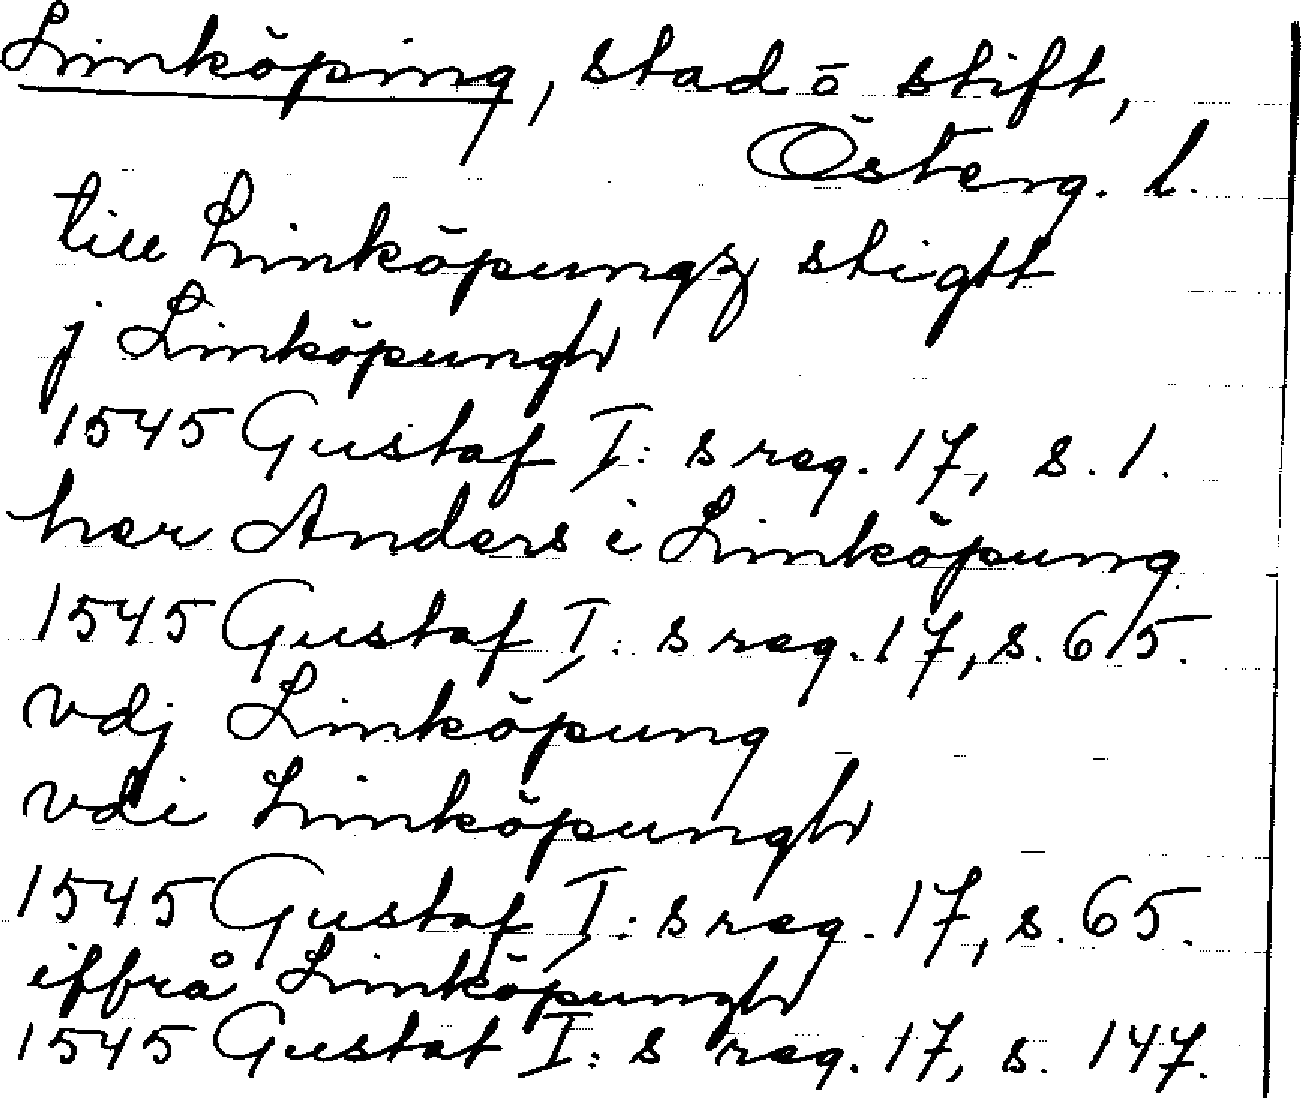 Linköping, stad ō stift,
Österg. l.
till Linköpungz stigtt
j Linköpungh
1545 Gustaf I:s reg. 17, s. 1.
her Anders i Linköpung
1545 Gustaf I:s reg. 17, s. 65.
vdj Linköpung
vdi Linköpungh
1545 Gustaf I:s reg. 17, s. 65.
iffrå Linköpungh
1545 Gustaf I:s reg. 17, s. 147.